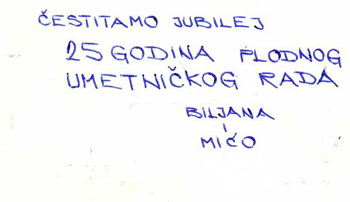 ČESTITAMO JUBILEJ
25 GODINA PLODNOG
UMETNIČKOG RADA
BILJANA
I
MIĆO